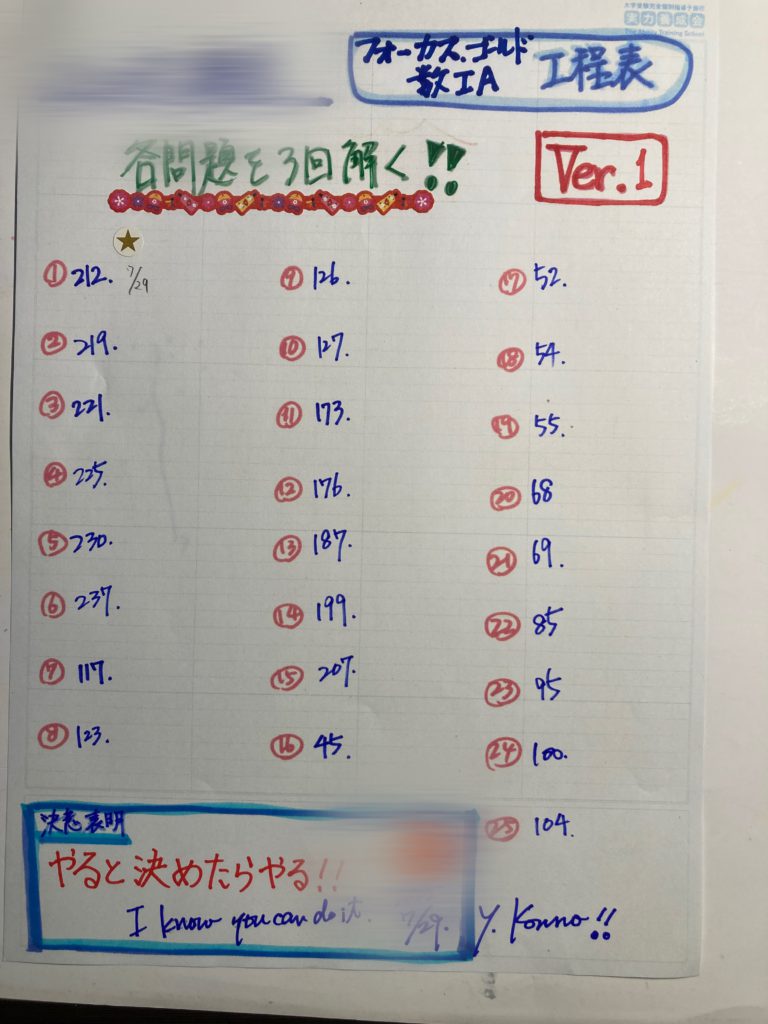 大学受験完全個別指導予備校
実力養成会
The Ability Training School
フォーカス.ゴールド
数ⅠA 工程表
各問題を3回解く!!
Ver.1
① 212. 7/29
② 219.
③ 221.
④ 225.
⑤ 230.
⑥ 237.
⑦ 117.
⑧ 123.
⑨ 126.
⑩ 127.
⑪ 173.
⑫ 176.
⑬ 187.
⑭ 199.
⑮ 207.
⑯ 45.
⑰ 52.
⑱ 54.
⑲ 55.
⑳ 68
㉑ 69.
㉒ 85
㉓ 95
㉔ 100.
㉕ 104.
決意表明
やると決めたらやる!!
I know you can do it. 7/29. Y. Konno!!